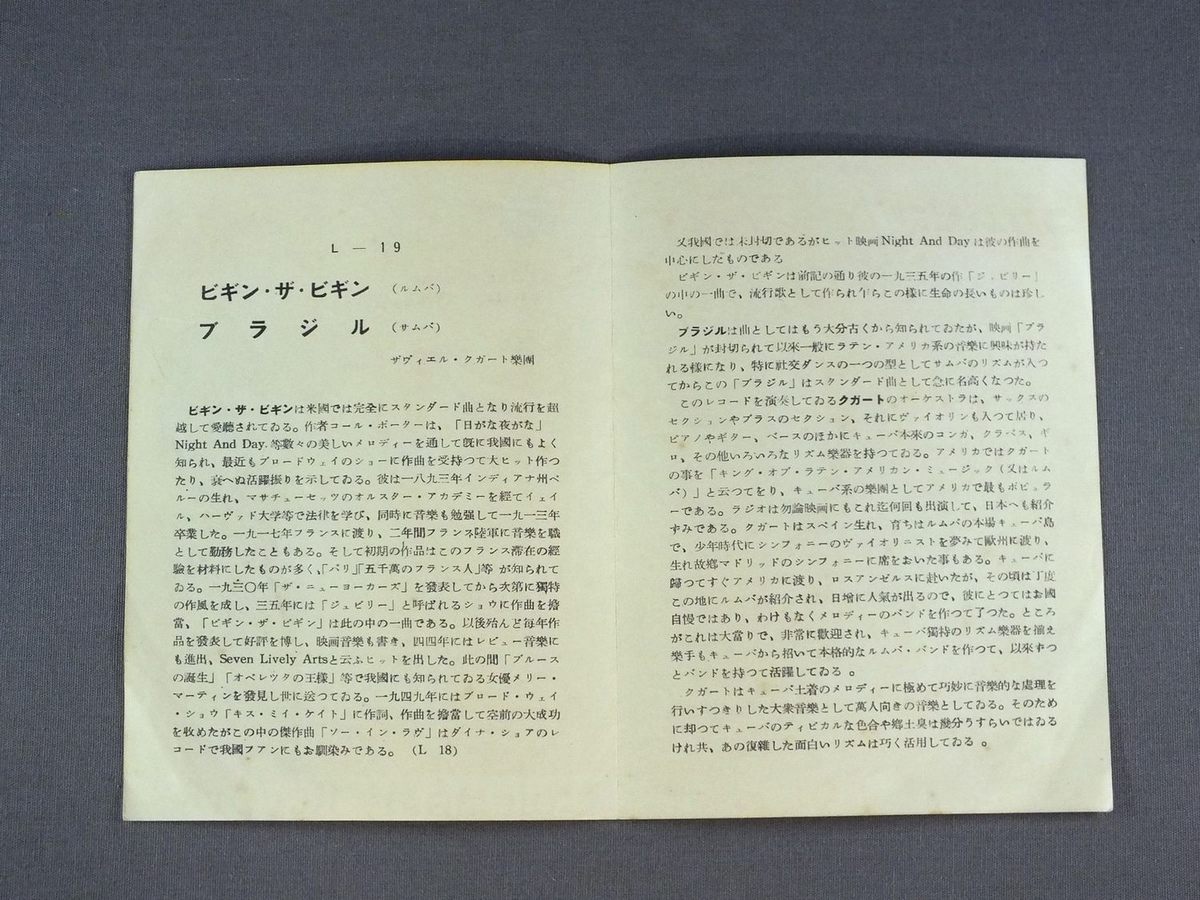 L — 19
ビギン・ザ・ビギン (ルムバ)
ブラジル (サムバ)
ザヴィエル・クガート樂團
ビギン・ザ・ビギンは米國では完全にスタンダード曲となり流行を超
越して愛聽されてゐる。作者コール・ポーターは、「日がな夜がな」
Night And Day. 等數々の美しいメロディーを通して既に我國にもよく
知られ、最近もブロードウェイのショーに作曲を受持つて大ヒット作つ
たり、衰へぬ活躍振りを示してゐる。彼は一八九三年インディアナ州ペ
ルーの生れ、マサチューセッツのオルスター・アカデミーを經てイェイ
ル、ハーヴァド大学等で法律を学び、同時に音樂も勉强して一九一三年
卒業した。一九一七年フランスに渡り、二年間フランス陸軍に音樂を職
として勤務したこともある。そして初期の作品はこのフランス滯在の經
驗を材料にしたものが多く、「パリ」「五千萬のフランス人」等 が知られて
ゐる。一九三〇年「ザ・ニューヨーカーズ」を發表してから次第に獨特
の作風を成し、三五年には「ジュビリー」と呼ばれるショウに作曲を擔
當、「ビギン・ザ・ビギン」は此の中の一曲である。以後殆んど每年作
品を發表して好評を博し、映画音樂も書き、四四年にはレビュー音樂に
も進出、Seven Lively Artsと云ふヒットを出した。此の間「ブルース
の誕生」「オペレツタの王様」等で我國にも知られてゐる女優メリー・
マーティンを發見し世に送つてゐる。一九四九年にはブロード・ウェイ
・ショウ「キス・ミイ・ケイト」に作詞、作曲を擔當して空前の大成功
を收めたがこの中の傑作曲「ソー・イン・ラヴ」はダイナ・ショアのレ
コードで我國フアンにもお馴染みである。 (L 18)
又我國では未封切であるがヒット映画Night And Dayは彼の作曲を
中心にしたものである
ビギン・ザ・ビギンは前記の通り彼の一九三五年の作「ジュビリー」
の中の一曲で、流行歌として作られ乍らこの樣に生命の長いものは珍し
い。
ブラジルは曲としてはもう大分古くから知られてゐたが、映画「ブラ
ジル」が封切られて以來一般にラテン・アメリカ系の音樂に興味が持た
れる様になり、特に社交ダンスの一つの型としてサムバのリズムが入つ
てからこの「ブラジル」はスタンダード曲として急に名高くなつた。
このレコードを演奏してゐるクガートのオーケストラは、サックスの
セクションやブラスのセクション、それにヴァイオリンも入つて居り、
ピアノやギター、ベースのほかにキューバ本來のコンガ、クラベス、ギ
ロ、その他いろいろなリズム樂器を持つてゐる。アメリカではクガート
の事を「キング・オブ・ラテン・アメリカン・ミュージック(又はルム
バ)」と云つてをり、キューバ系の樂團としてアメリカで最もポピュラ
ーである。ラジオは勿論映画にもこれ迄何回も出演して、日本へも紹介
ずみである。クガートはスペイン生れ、育ちはルムバの本場キューバ島
で、少年時代にシンフォニーのヴァイオリニストを夢みて歐州に渡り、
生れ故鄕マドリッドのシンフォニーに席をおいた事もある。キューバに
歸つてすぐアメリカに渡り、ロスアンゼルスに赴いたが、その頃は丁度
この地にルムバが紹介され、日增に人氣が出るので、彼にとつてはお國
自慢ではあり、わけもなくメロディーのバンドを作つて了つた。ところ
がこれは大當りで、非常に歡迎され、キューバ獨特のリズム樂器を揃え
樂手もキューバから招いて本格的なルムバ・バンドを作つて、以來ずつ
とバンドを持つて活躍してゐる 。
クガートはキューバ土着のメロディーに極めて巧妙に音樂的な處理を
行いすつきりした大衆音樂として萬人向きの音樂としてゐる。そのため
に却つてキューバのティピカルな色合や鄕土臭は幾分うすらいではゐる
けれ共、あの復雜した面白いリズムは巧く活用してゐる 。